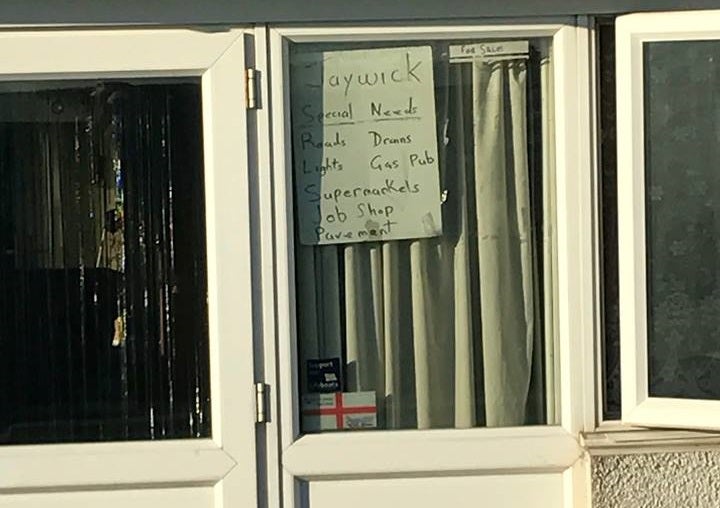 Jaywick
Special Needs
Roads Drains
Lights Gas Pub
Supermarkets
Job Shop
Pavement
For Sale
Support
lifeboats